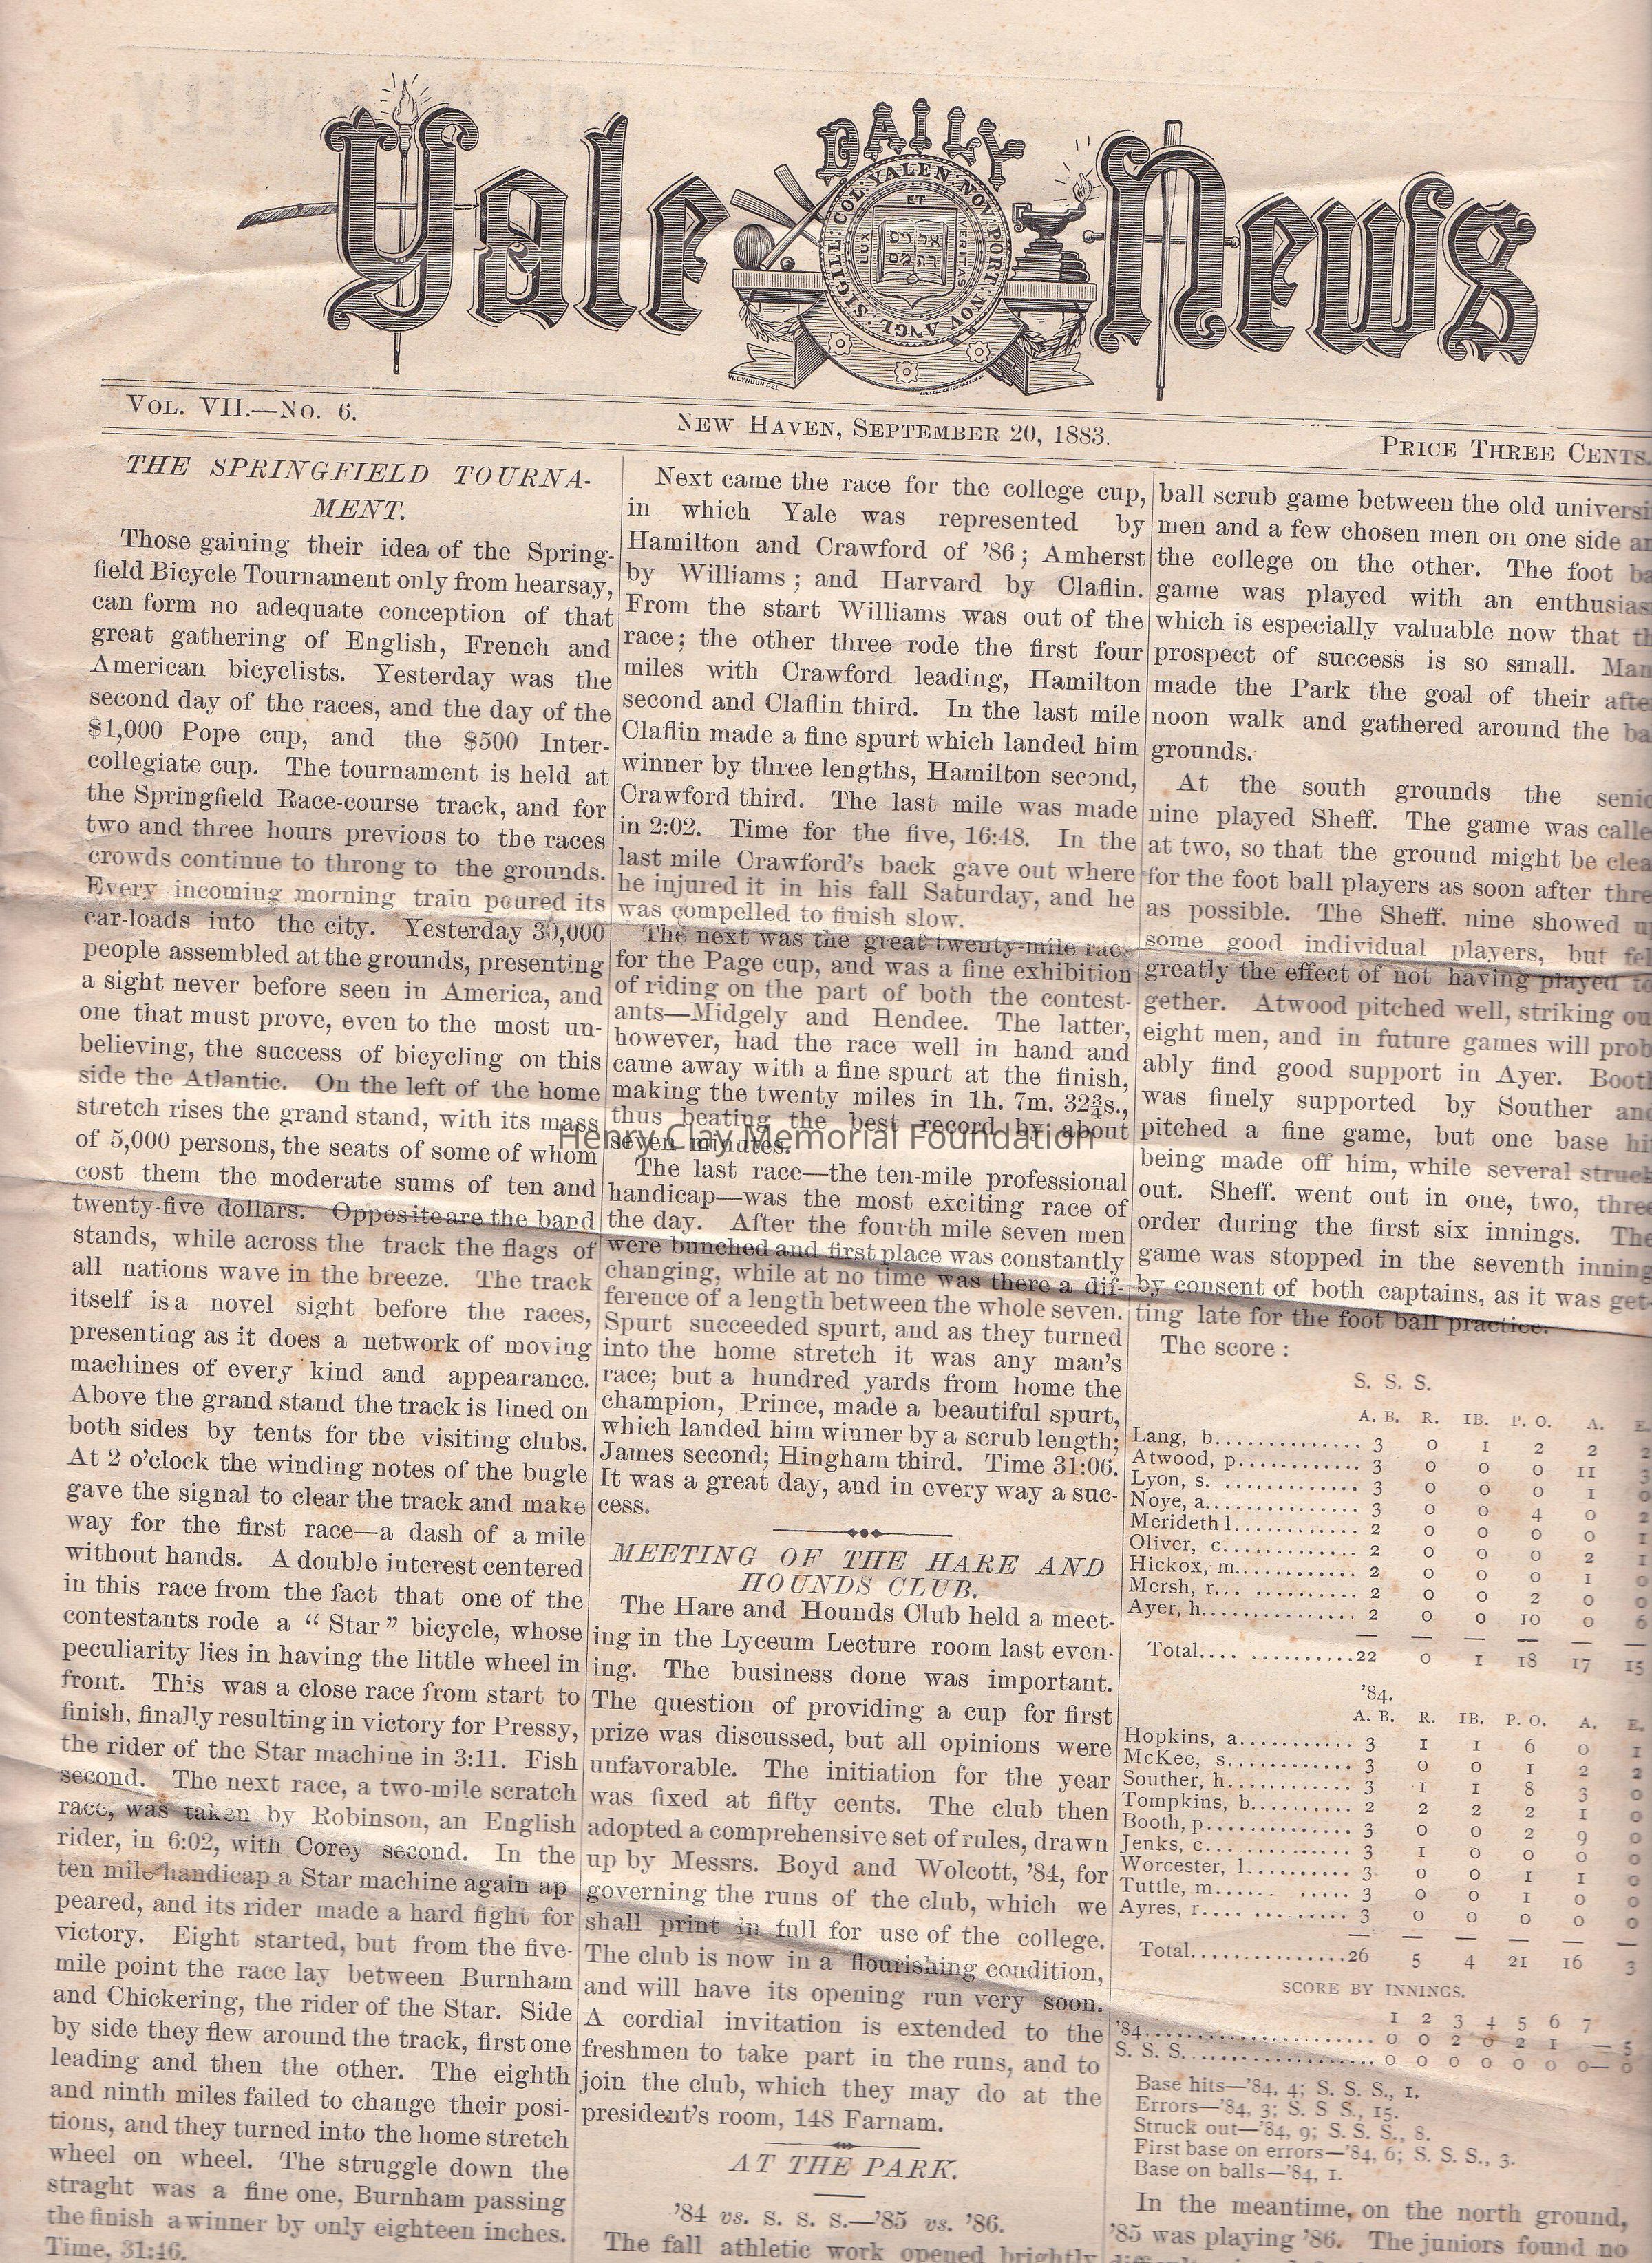 Yale
DAILY
News
SIGILL : COL : YALEN : NOV : PORT : NOV ANGL :
LUX
ET
VERITAS
W. LYNDON DEL
VOL. VII.—No. 6.
NEW HAVEN, SEPTEMBER 20, 1883.
PRICE THREE CENTS.
THE SPRINGFIELD TOURNA-
MENT.
Those gaining their idea of the Spring-
field Bicycle Tournament only from hearsay,
can form no adequate conception of that
great gathering of English, French and
American bicyclists. Yesterday was the
second day of the races, and the day of the
$1,000 Pope cup, and the $500 Inter-
collegiate cup. The tournament is held at
the Springfield Race-course track, and for
two and three hours previous to the races
crowds continue to throng to the grounds.
Every incoming morning train poured its
car-loads into the city. Yesterday 30,000
people assembled at the grounds, presenting
a sight never before seen in America, and
one that must prove, even to the most un-
believing, the success of bicycling on this
side the Atlantic. On the left of the home
stretch rises the grand stand, with its mass
of 5,000 persons, the seats of some of whom
cost them the moderate sums of ten and
twenty-five dollars. Opposite are the band
stands, while across the track the flags of
all nations wave in the breeze. The track
itself is a novel sight before the races,
presenting as it does a network of moving
machines of every kind and appearance.
Above the grand stand the track is lined on
both sides by tents for the visiting clubs.
At 2 o'clock the winding notes of the bugle
gave the signal to clear the track and make
way for the first race—a dash of a mile
without hands. A double interest centered
in this race from the fact that one of the
contestants rode a "Star" bicycle, whose
peculiarity lies in having the little wheel in
front. This was a close race from start to
finish, finally resulting in victory for Pressy,
the rider of the Star machine in 3:11. Fish
second. The next race, a two-mile scratch
race, was taken by Robinson, an English
rider, in 6:02, with Corey second. In the
ten mile handicap a Star machine again ap
peared, and its rider made a hard fight for
victory. Eight started, but from the five-
mile point the race lay between Burnham
and Chickering, the rider of the Star. Side
by side they flew around the track, first one
leading and then the other. The eighth
and ninth miles failed to change their posi-
tions, and they turned into the home stretch
wheel on wheel. The struggle down the
straght was a fine one, Burnham passing
the finish a winner by only eighteen inches.
Time, 31:46.
Next came the race for the college cup,
in which Yale was represented by
Hamilton and Crawford of '86; Amherst
by Williams; and Harvard by Claflin.
From the start Williams was out of the
race; the other three rode the first four
miles with Crawford leading, Hamilton
second and Claflin third. In the last mile
Claflin made a fine spurt which landed him
winner by three lengths, Hamilton second,
Crawford third. The last mile was made
in 2:02. Time for the five, 16:48. In the
last mile Crawford's back gave out where
he injured it in his fall Saturday, and he
was compelled to finish slow.
The next was the great twenty-mile race
for the Page cup, and was a fine exhibition
of riding on the part of both the contest-
ants—Midgely and Hendee. The latter,
however, had the race well in hand and
came away with a fine spurt at the finish,
making the twenty miles in 1h. 7m. 32¾s.,
thus beating the best record by about
seven minutes.
Henry Clay Memorial Foundation
The last race—the ten-mile professional
handicap—was the most exciting race of
the day. After the fourth mile seven men
were bunched and first place was constantly
changing, while at no time was there a dif-
ference of a length between the whole seven.
Spurt succeeded spurt, and as they turned
into the home stretch it was any man's
race; but a hundred yards from home the
champion, Prince, made a beautiful spurt,
which landed him winner by a scrub length;
James second; Hingham third. Time 31:06.
It was a great day, and in every way a suc-
cess.
MEETING OF THE HARE AND
HOUNDS CLUB.
The Hare and Hounds Club held a meet-
ing in the Lyceum Lecture room last even-
ing. The business done was important.
The question of providing a cup for first
prize was discussed, but all opinions were
unfavorable. The initiation for the year
was fixed at fifty cents. The club then
adopted a comprehensive set of rules, drawn
up by Messrs. Boyd and Wolcott, '84, for
governing the runs of the club, which we
shall print in full for use of the college.
The club is now in a flourishing condition,
and will have its opening run very soon.
A cordial invitation is extended to the
freshmen to take part in the runs, and to
join the club, which they may do at the
president's room, 148 Farnam.
AT THE PARK.
'84 vs. S. S. S.—'85 vs. '86.
The fall athletic work opened brightly
ball scrub game between the old universi
men and a few chosen men on one side an
the college on the other. The foot ba
game was played with an enthusias
which is especially valuable now that th
prospect of success is so small. Man
made the Park the goal of their afte
noon walk and gathered around the ba
grounds.
At the south grounds the senio
nine played Sheff. The game was calle
at two, so that the ground might be clea
for the foot ball players as soon after thre
as possible. The Sheff. nine showed u
some good individual players, but fel
greatly the effect of not having played to
gether. Atwood pitched well, striking ou
eight men, and in future games will prob
ably find good support in Ayer. Booth
was finely supported by Souther and
pitched a fine game, but one base hi
being made off him, while several struck
out. Sheff. went out in one, two, three
order during the first six innings. The
game was stopped in the seventh inning
by consent of both captains, as it was get-
ting late for the foot ball practice.
The score:
S. S. S.
A. B. R. IB. P. O. A. E.
Lang, b.............. 3 0 1 2 2 2
Atwood, p............ 3 0 0 0 11 3
Lyon, s.............. 3 0 0 0 1 0
Noye, a.............. 3 0 0 4 0 2
Merideth l........... 2 0 0 0 0 1
Oliver, c............ 2 0 0 0 2 1
Hickox, m............ 2 0 0 0 1 0
Mersh, r... ......... 2 0 0 2 0 0
Ayer, h.............. 2 0 0 10 0 6
Total.... ...........22 0 1 18 17 15
'84.
A. B. R. IB. P. O. A. E.
Hopkins, a........... 3 1 1 6 0 1
McKee, s............. 3 0 0 1 2 2
Souther, h........... 3 1 1 8 3 0
Tompkins, b.......... 2 2 2 2 1 0
Booth, p............. 3 0 0 2 9 0
Jenks, c............. 3 1 0 0 0 0
Worcester, l......... 3 0 0 1 1 0
Tuttle, m...... ..... 3 0 0 1 0 0
Ayres, r.... ........ 3 0 0 0 0 0
Total...............26 5 4 21 16 3
SCORE BY INNINGS.
1 2 3 4 5 6 7
'84......................... 0 0 2 0 2 1 — 5
S. S. S..................... 0 0 0 0 0 0 0— 0
Base hits—'84, 4; S. S. S., 1.
Errors—'84, 3; S. S S., 15.
Struck out—'84, 9; S. S. S., 8.
First base on errors—'84, 6; S. S. S., 3.
Base on balls—'84, 1.
In the meantime, on the north ground,
'85 was playing '86. The juniors found no